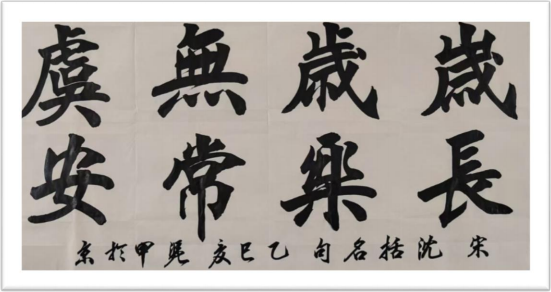 歲歲無虞
長樂常安
宋沈括名句 乙巳夏 甲於京